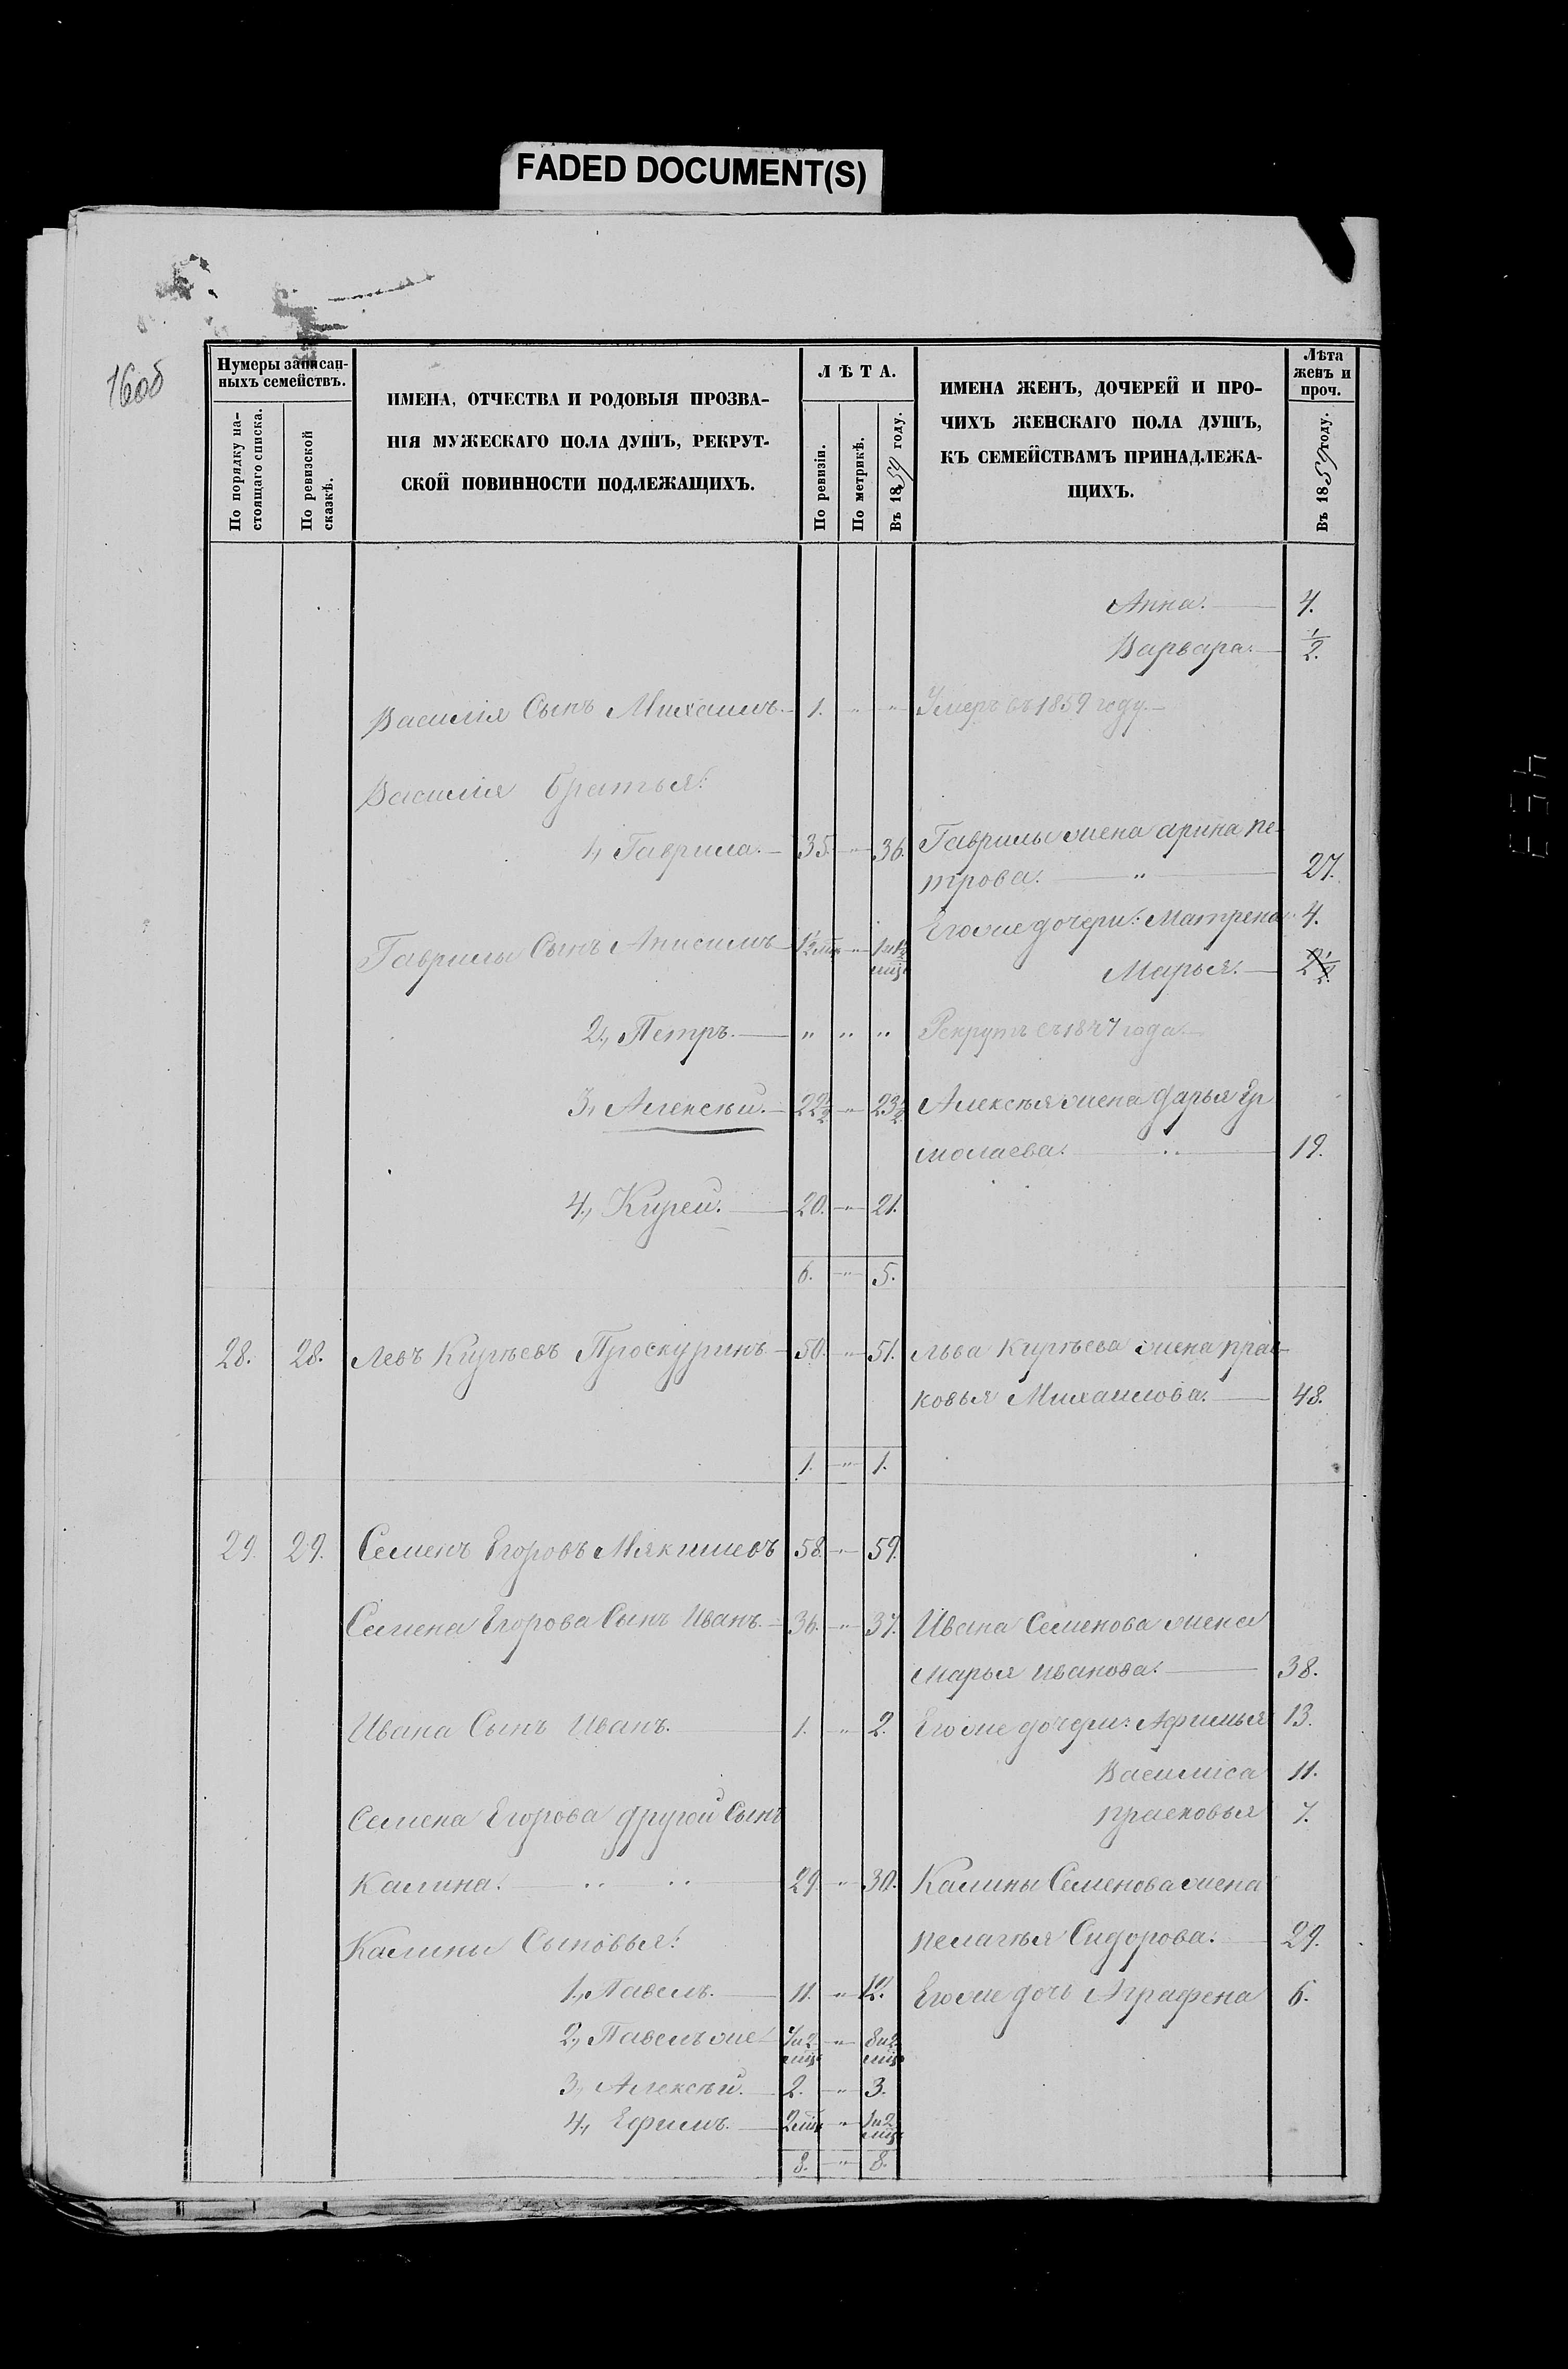 FADED DOCUMENT(S)
16об
Нумеры записан-
ныхъ семействъ.
По порядку на-
стоящаго списка.
По ревизской
сказкѣ.
ИМЕНА, ОТЧЕСТВА И РОДОВЫЯ ПРОЗВА-
НІЯ МУЖЕСКАГО ПОЛА ДУШЪ, РЕКРУТ-
СКОЙ ПОВИННОСТИ ПОДЛЕЖАЩИХЪ.
ЛѢТА.
По ревизіи.
По метрикѣ.
Въ 1859 году.
ИМЕНА ЖЕНЪ, ДОЧЕРЕЙ И ПРО-
ЧИХЪ ЖЕНСКАГО ПОЛА ДУШЪ,
КЪ СЕМЕЙСТВАМЪ ПРИНАДЛЕЖА-
ЩИХЪ.
Лѣта
женъ и
проч.
Въ 1859 году.
Анна. 4.
Варвара. 1/2.
Василія Сынъ Михаилъ 1. " " Умеръ въ 1859 году.
Василія братья:
1, Гаврила. 35. " 36. Гаврилы жена арина пе-
трова. " 27.
Его же дочери: Матрена 4.
Гаврилы Сынъ Анисимъ
Марья. 2 1/2.
2., Петръ. " " " Рекрутъ съ 1847 года.
3, Алексѣй. 22 1/2 " 23 1/2. Алексѣя жена дарья Ер
молаева. " 19.
4., Кирей. 20. " 21.
6. " 5.
28. 28. Левъ Кирѣевъ Проскуринъ 50. " 51. Льва Кирѣева жена прас-
ковья Михаилова. 48.
1. " 1.
29. 29. Семенъ Егоровъ Мякишевъ 58. " 59.
Семена Егорова Сынъ Иванъ. 36. " 37. Ивана Семенова жена
марья иванова. 38.
Ивана Сынъ Иванъ. 1. " 2. Его же дочери: Афимья 13.
Василиса 11.
Семена Егорова другой Сынъ
прасковья 7.
Калина. " " 29. " 30. Калины Семенова жена
Калины Сыновья:
пелагѣя Сидорова. 29.
1., Павелъ. 11. " 12. Его же дочь Аграфена 6.
2., Павелъ же 7 и 2 мѣс " 8 и 2 мѣс
3, Алексѣй. 2. " 3.
4., Ефимъ. 2 мѣс " 1 и 2 мѣс
8. " 8.